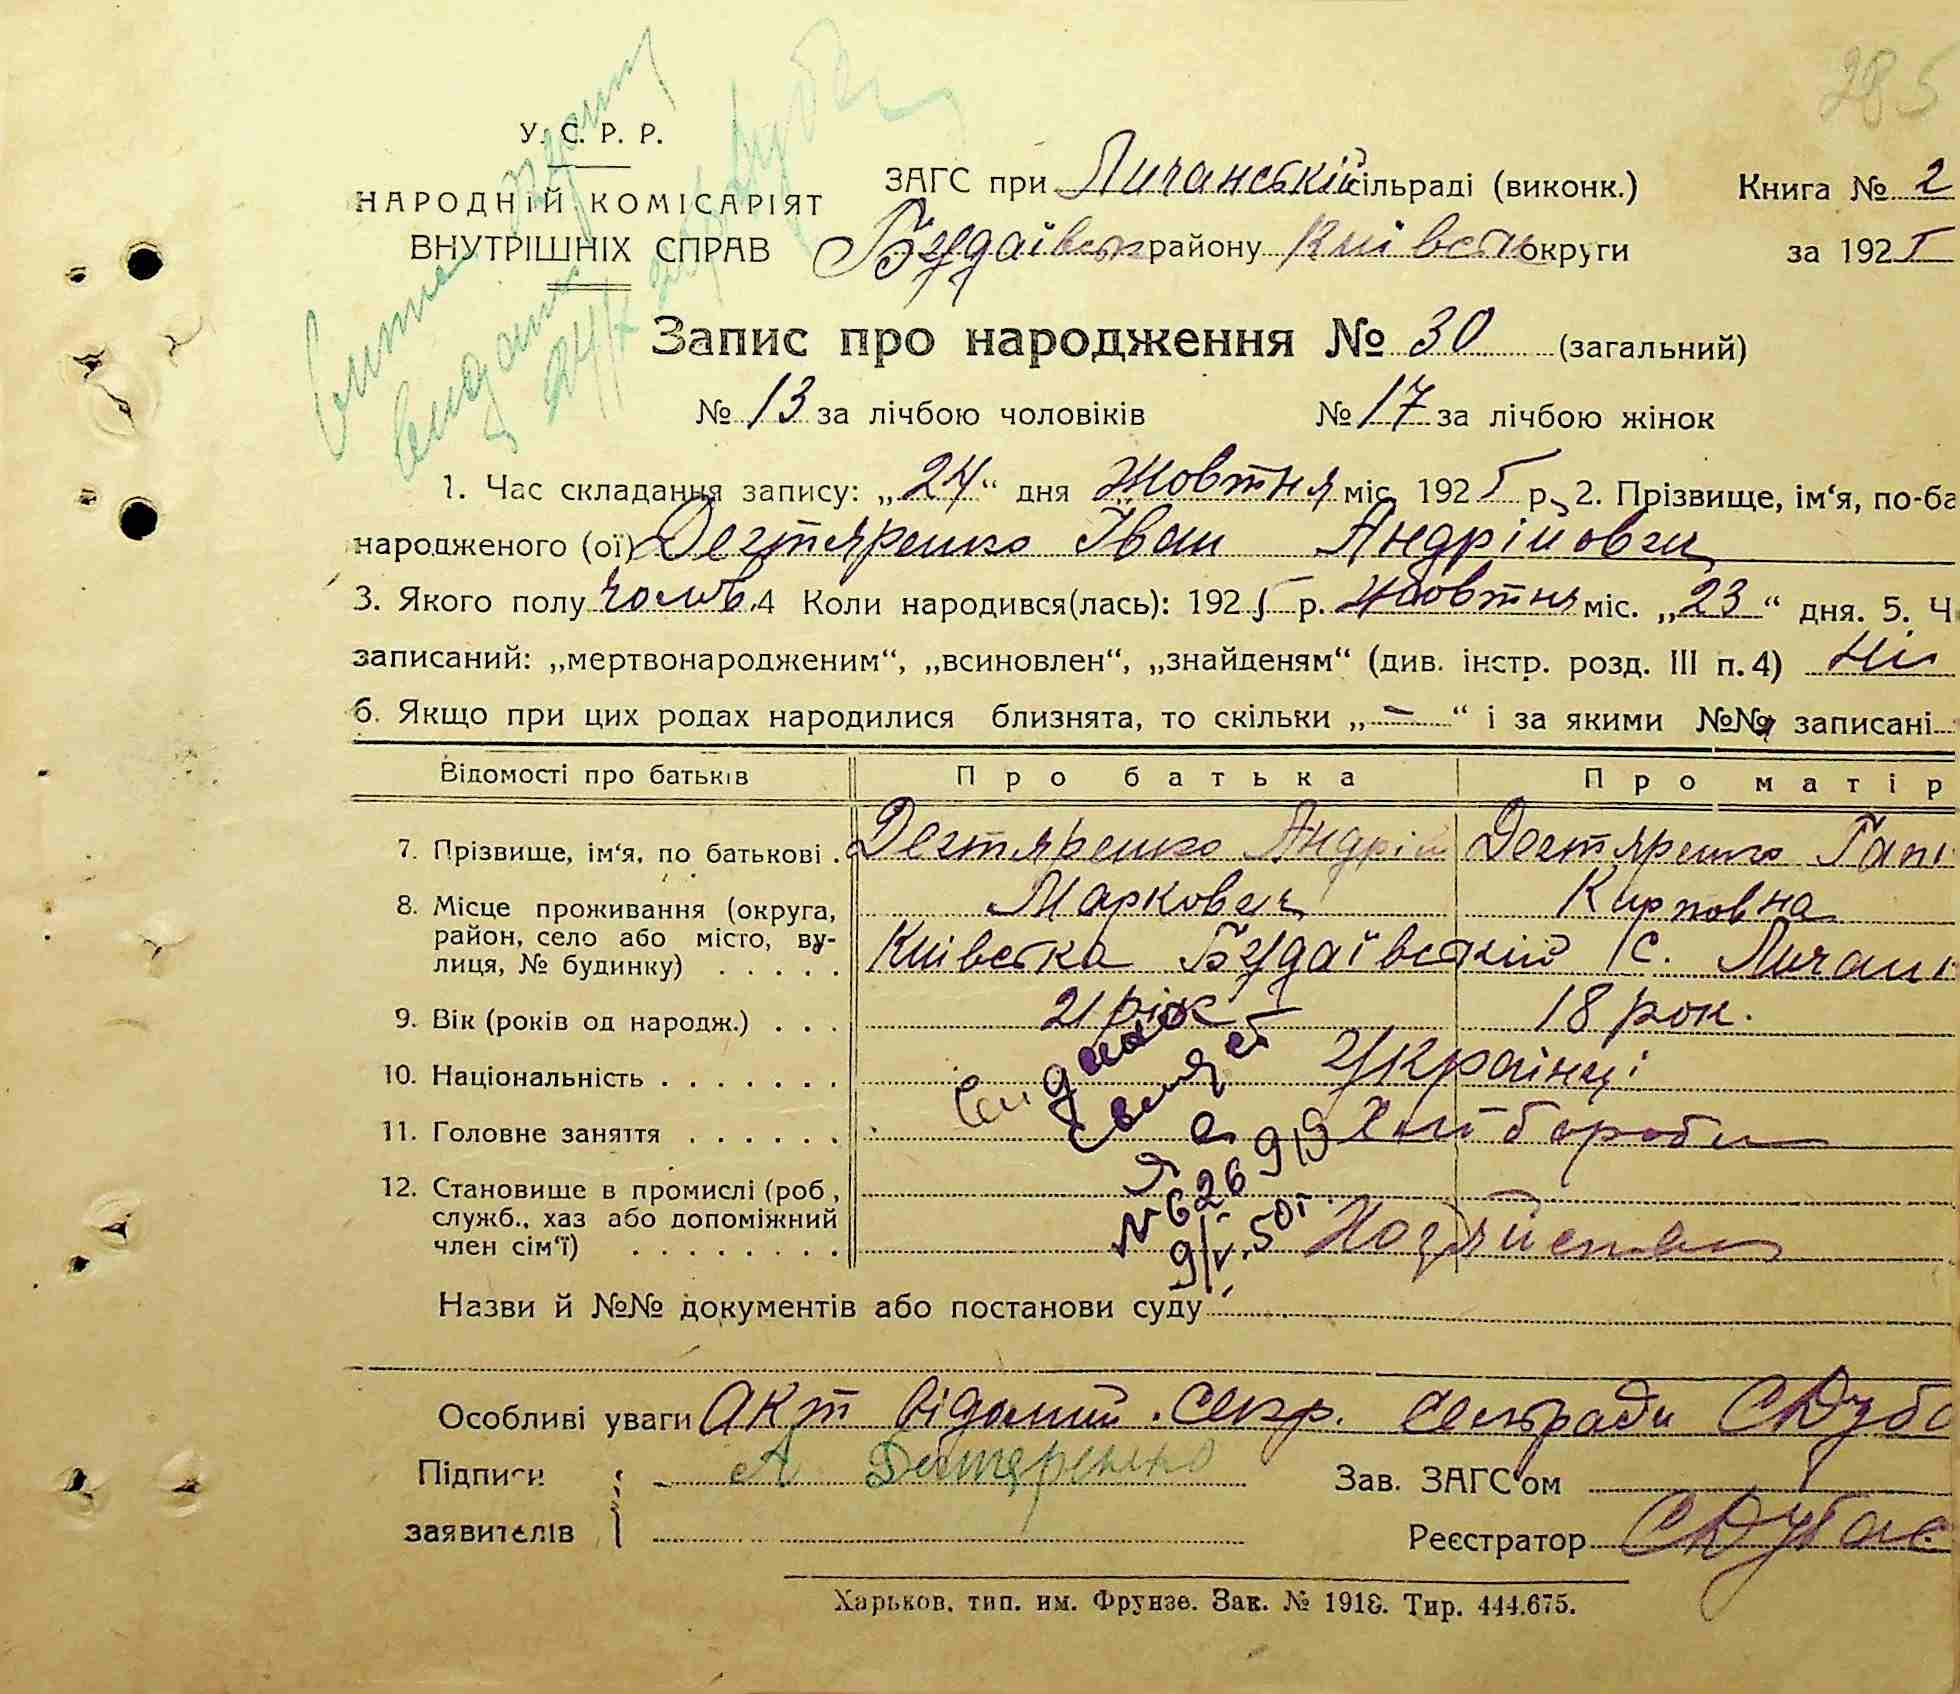 285
У. С. Р. Р.
НАРОДНІЙ КОМІСАРІЯТ
ВНУТРІШНІХ СПРАВ
ЗАГС при Личанській сільраді (виконк.)
Будаївськ району Київськ округи
Книга № 2
за 1925
Запис про народження № 30 (загальний)
№ 13 за лічбою чоловіків № 17 за лічбою жінок
1. Час складання запису: „24“ дня Жовтня міс. 1925 р. 2. Прізвище, ім‘я, по-ба
народженого (ої) Дегтяренко Іван Андрійович
3. Якого полу чолов. 4 Коли народився(лась): 1925 р. жовтня міс. „23“ дня. 5. Ч
записаний: „мертвонародженим“, „всиновлен“, „знайденям“ (див. інстр. розд. III п. 4) Ні
6. Якщо при цих родах народилися близнята, то скільки „—“ і за якими №№ записані
Відомості про батьків Про батька Про матір
7. Прізвище, ім‘я, по батькові . Дегтяренко Андрій Дегтяренко Гапі
Маркович Карповна
8. Місце проживання (округа, район, село або місто, вулиця, № будинку) . . . . . Київська Будаївський с. Личан
9. Вік (років од народж.) . . . 21 рік 18 рок.
10. Національність . . . . . . . Українці
11. Головне заняття . . . . . . Хлібороби
12. Становище в промислі (роб, служб., хаз або допоміжний член сім‘ї) . . . . . . . .
Видано
свидет
№ 626919
9/V.50г.
Назви й №№ документів або постанови суду
Особливі уваги Акт відомий. секр. сельради СДуба
Підписи А Дегтеренко Зав. ЗАГС‘ом
заявителів Реєстратор СДубас
Харьков, тип. им. Фрунзе. Зак. № 1918. Тир. 444.675.